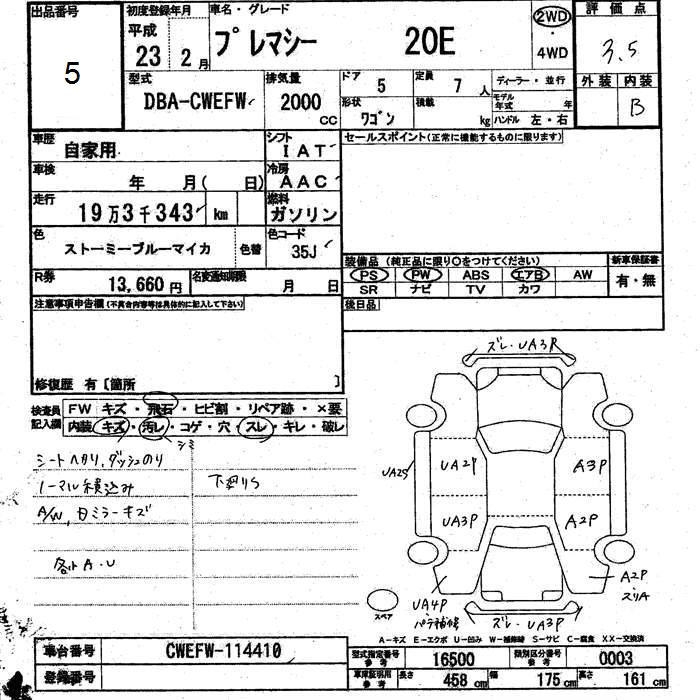 出品番号
5
初度登録年月
平成
23 2月
車名・グレード
プレマシー 20E
2WD
・
4WD
評価点
3.5
外装 内装
B
型式
DBA-CWEFW
排気量
2000
CC
ドア 5
定員 7 人
ディーラー・並行
形状 ワゴン
積載 kg
モデル年式 年
ハンドル 左・右
車歴
自家用
シフト
IAT
セールスポイント(正常に機能するものに限ります)
車検
年 月( 日)
冷房
AAC
走行
19万3千343 km
燃料
ガソリン
色
ストーミーブルーマイカ
色替
色コード
35J
装備品(純正品に限り○をつけてください)
新車保証書
PS PW ABS エアB AW
SR ナビ TV カワ
有・無
R券
13,660円
名変通知期限
月 日
後日品
注意事項申告欄(不具合内容等は具体的に記入して下さい)
修復歴 有〔箇所 〕
検査員
記入欄
FW キズ・飛石・ヒビ割・リペア跡・×要
内装 キズ・汚レ・コゲ・穴・スレ・キレ・破レ
シミ
シートヘタリ,ダッシュのり
ノーマル積込み
A/W,日ミラーキズ
各小A.U
下廻りS
ズレ・UA3R
UA2S
UA2P
A3P
UA3P
A2P
UA4P
パテ補修
A2P
スリA
ズレ・UA3P
スペア
A-キズ E-エクボ U-凹み W-補修跡 S-サビ C-腐食 XX-交換済
車台番号
CWEFW-114410
登録番号
型式指定番号
参考
16500
類別区分番号
参考
0003
車庫証明用
参考
長さ 458 cm
幅 175 cm
高さ 161 cm